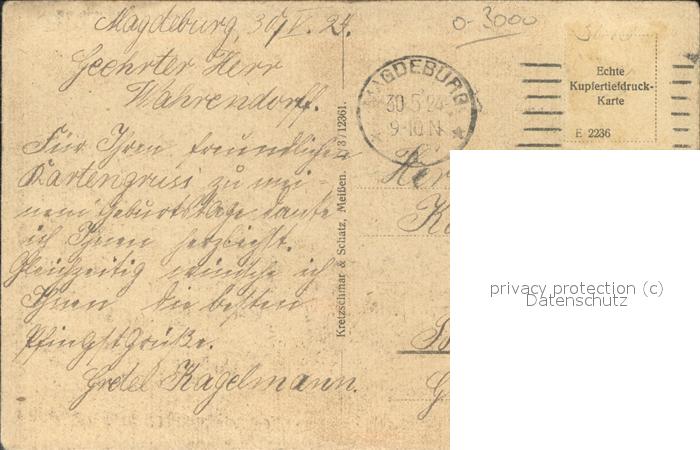 Magdeburg, 30/V. 24.
Geehrter Herr
Wahrendorff.
Für Ihren freundlichen
Kartengruss zu mei-
nem Geburtstage danke
ich Ihnen herzlichst.
Gleichzeitig wünsche ich
Ihnen die besten
Pfingstgrüße.
Gretel Kagelmann.
Kretzschmar & Schatz, Meißen. 73712361.
0-3000
MAGDEBURG
30.5.24
9-10 N
Echte
Kupfertiefdruck-
Karte
E 2236
Her
privacy protection (c)
Datenschutz